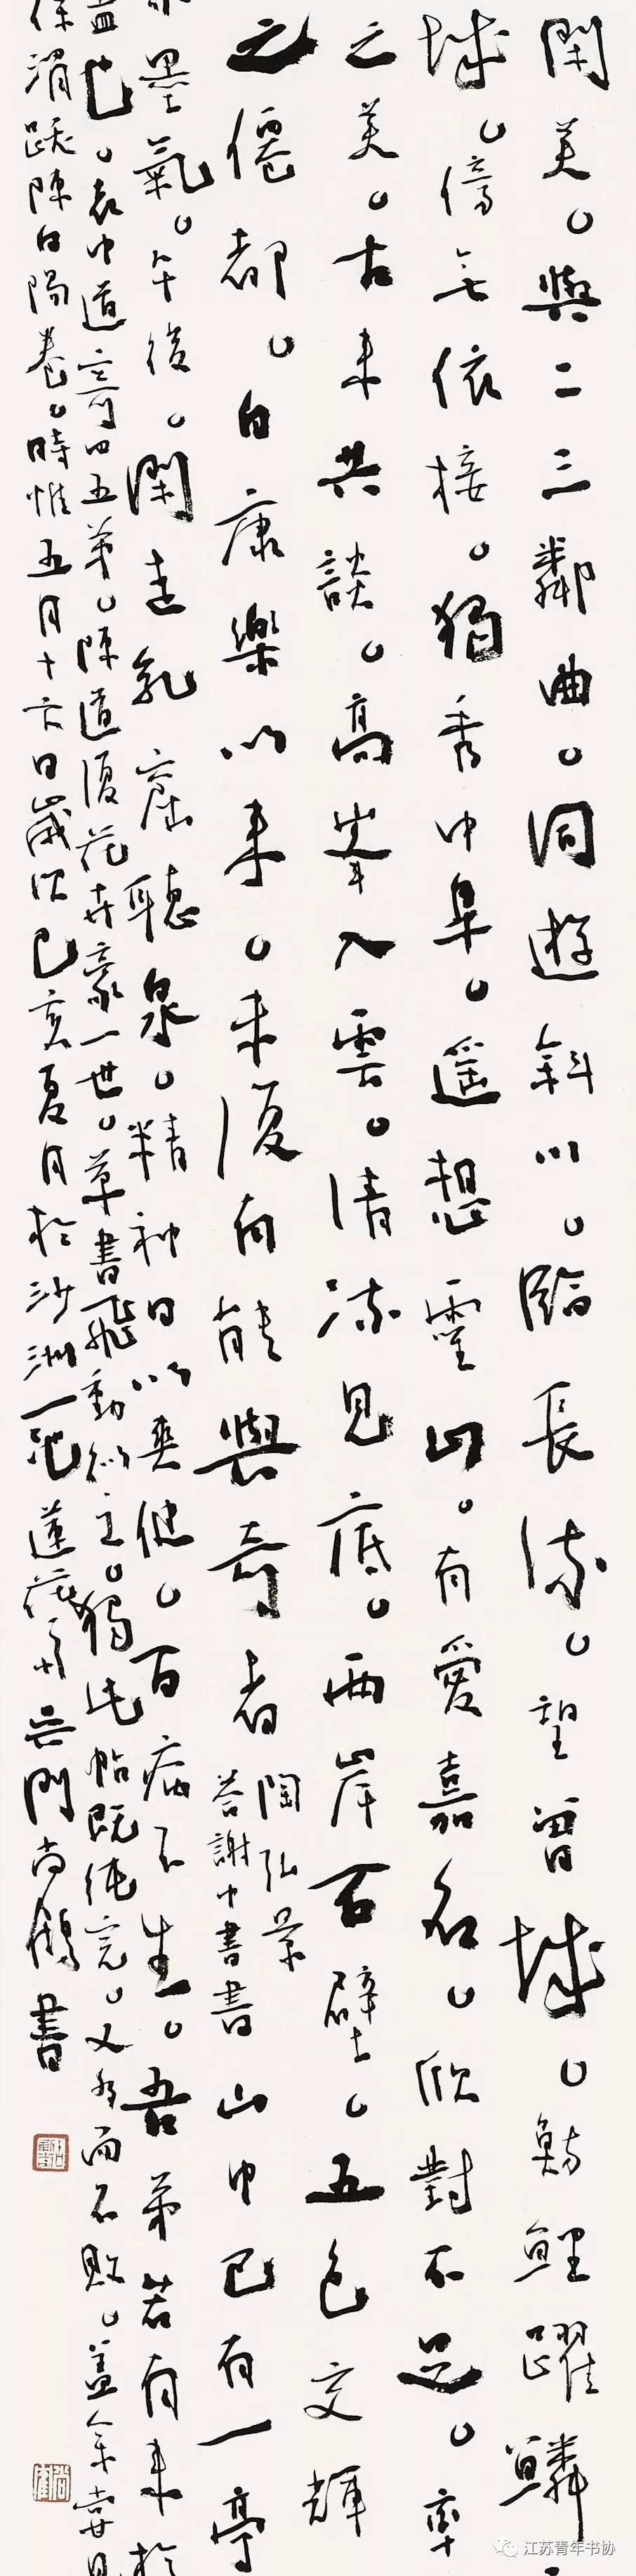 閑美。與二三鄰曲。同遊斜川。臨長流。望曾城。魴鯉躍鱗
城。傍無依接。獨秀中皋。遥想靈山。有愛嘉名。欣對不足。率
之美。古來共談。高峯入雲。清流見底。兩岸石壁。五色交輝
之僊都。自康樂以來。未復有能與奇者
陶弘景
答謝中書書
山中已有一亭
墨氣。午後。閑走乳窟聽泉。精神日以爽健。百病不生。吾弟若有來於
益也。袁中道寄四五弟。陳道復花卉豪一世。草書飛動似之。獨此帖既純完。又多而不敗。蓋余嘗見
徐渭跋陳白陽卷。時惟五月十六日歲次己亥夏月於沙洲一池蓮花
吴門尚鶴書
江苏青年书协